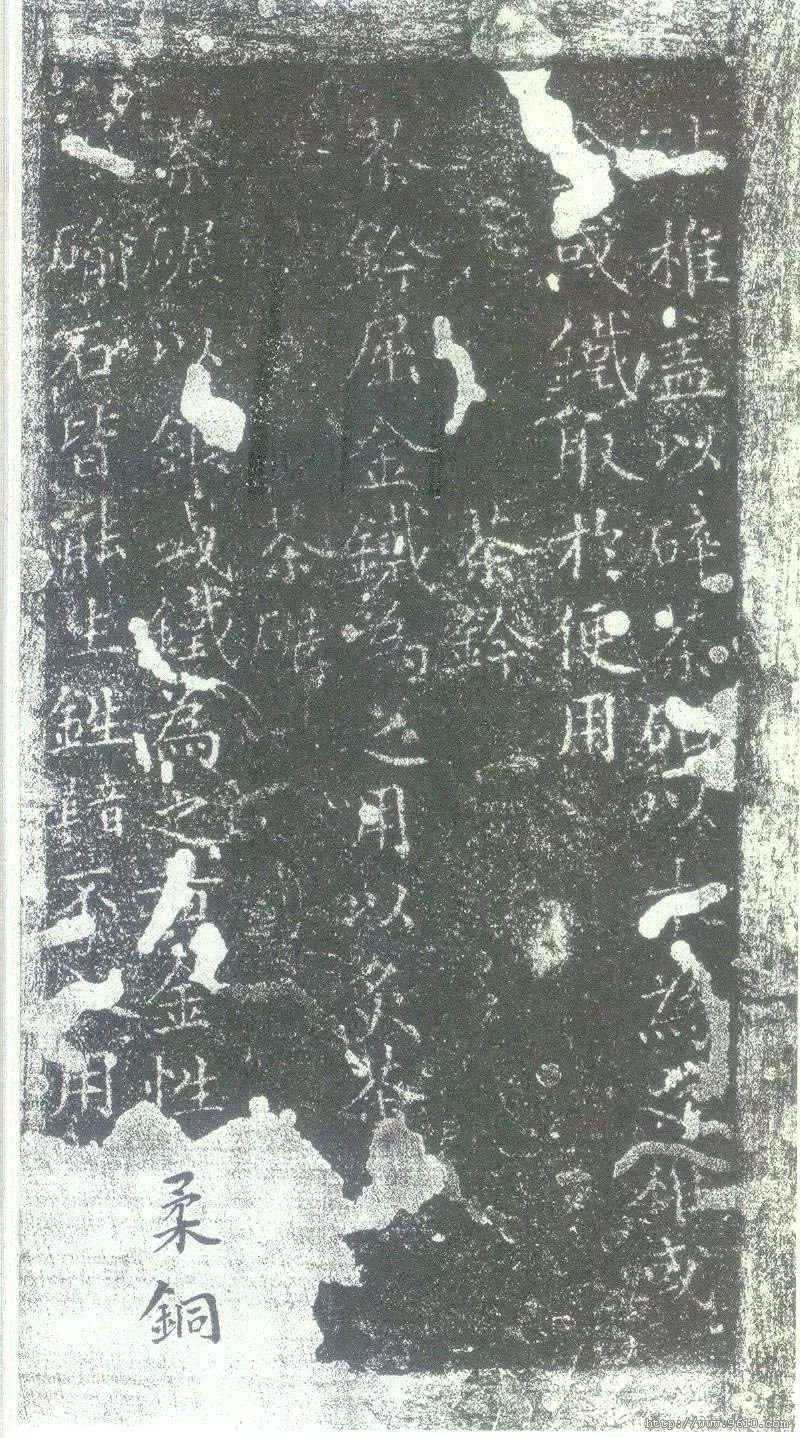 椎蓋以碎茶砧以木為之椎或
或鐵取於便用
茶鈐
茶鈐屈金鐵為之用以炙茶
茶碾
茶碾以銀或鐵為之黃金性柔銅
石皆能生鉎不用